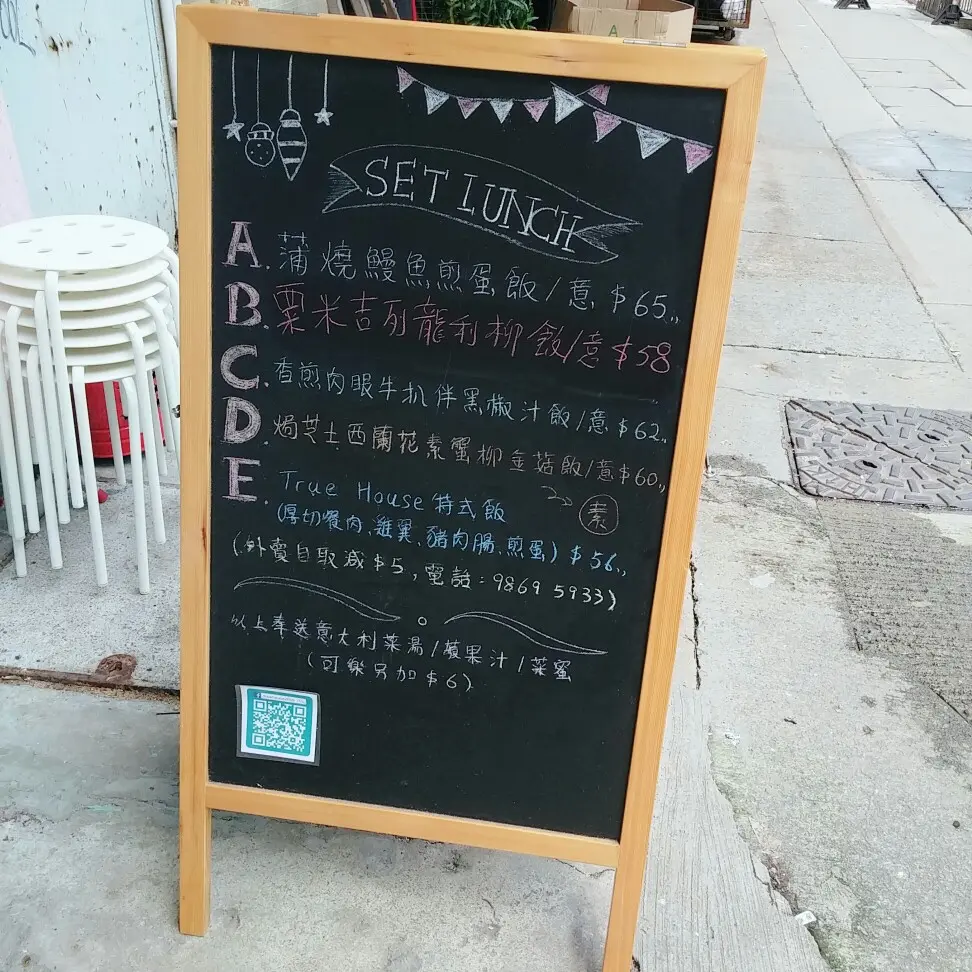 SET LUNCH
A. 蒲燒鰻魚煎蛋飯/意 $65.,
B. 粟米吉列龍利柳飯/意 $58
C. 香煎肉眼牛扒伴黑椒汁飯/意 $62.,
D. 焗芝士西蘭花素蟹柳金菇飯/意 $60.,
素
E. True House 特式飯
(厚切餐肉、雞翼、豬肉腸、煎蛋) $56.,
(外賣自取減 $5, 電話: 9869 5933)
以上奉送意大利菜湯/蘋果汁/菜蜜
(可樂另加 $6)